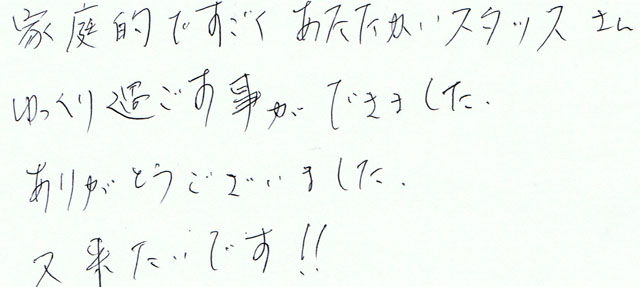 家庭的ですごくあたたかいスタッスさん
ゆっくり過ごす事ができました.
ありがとうございました.
又来たいです!!